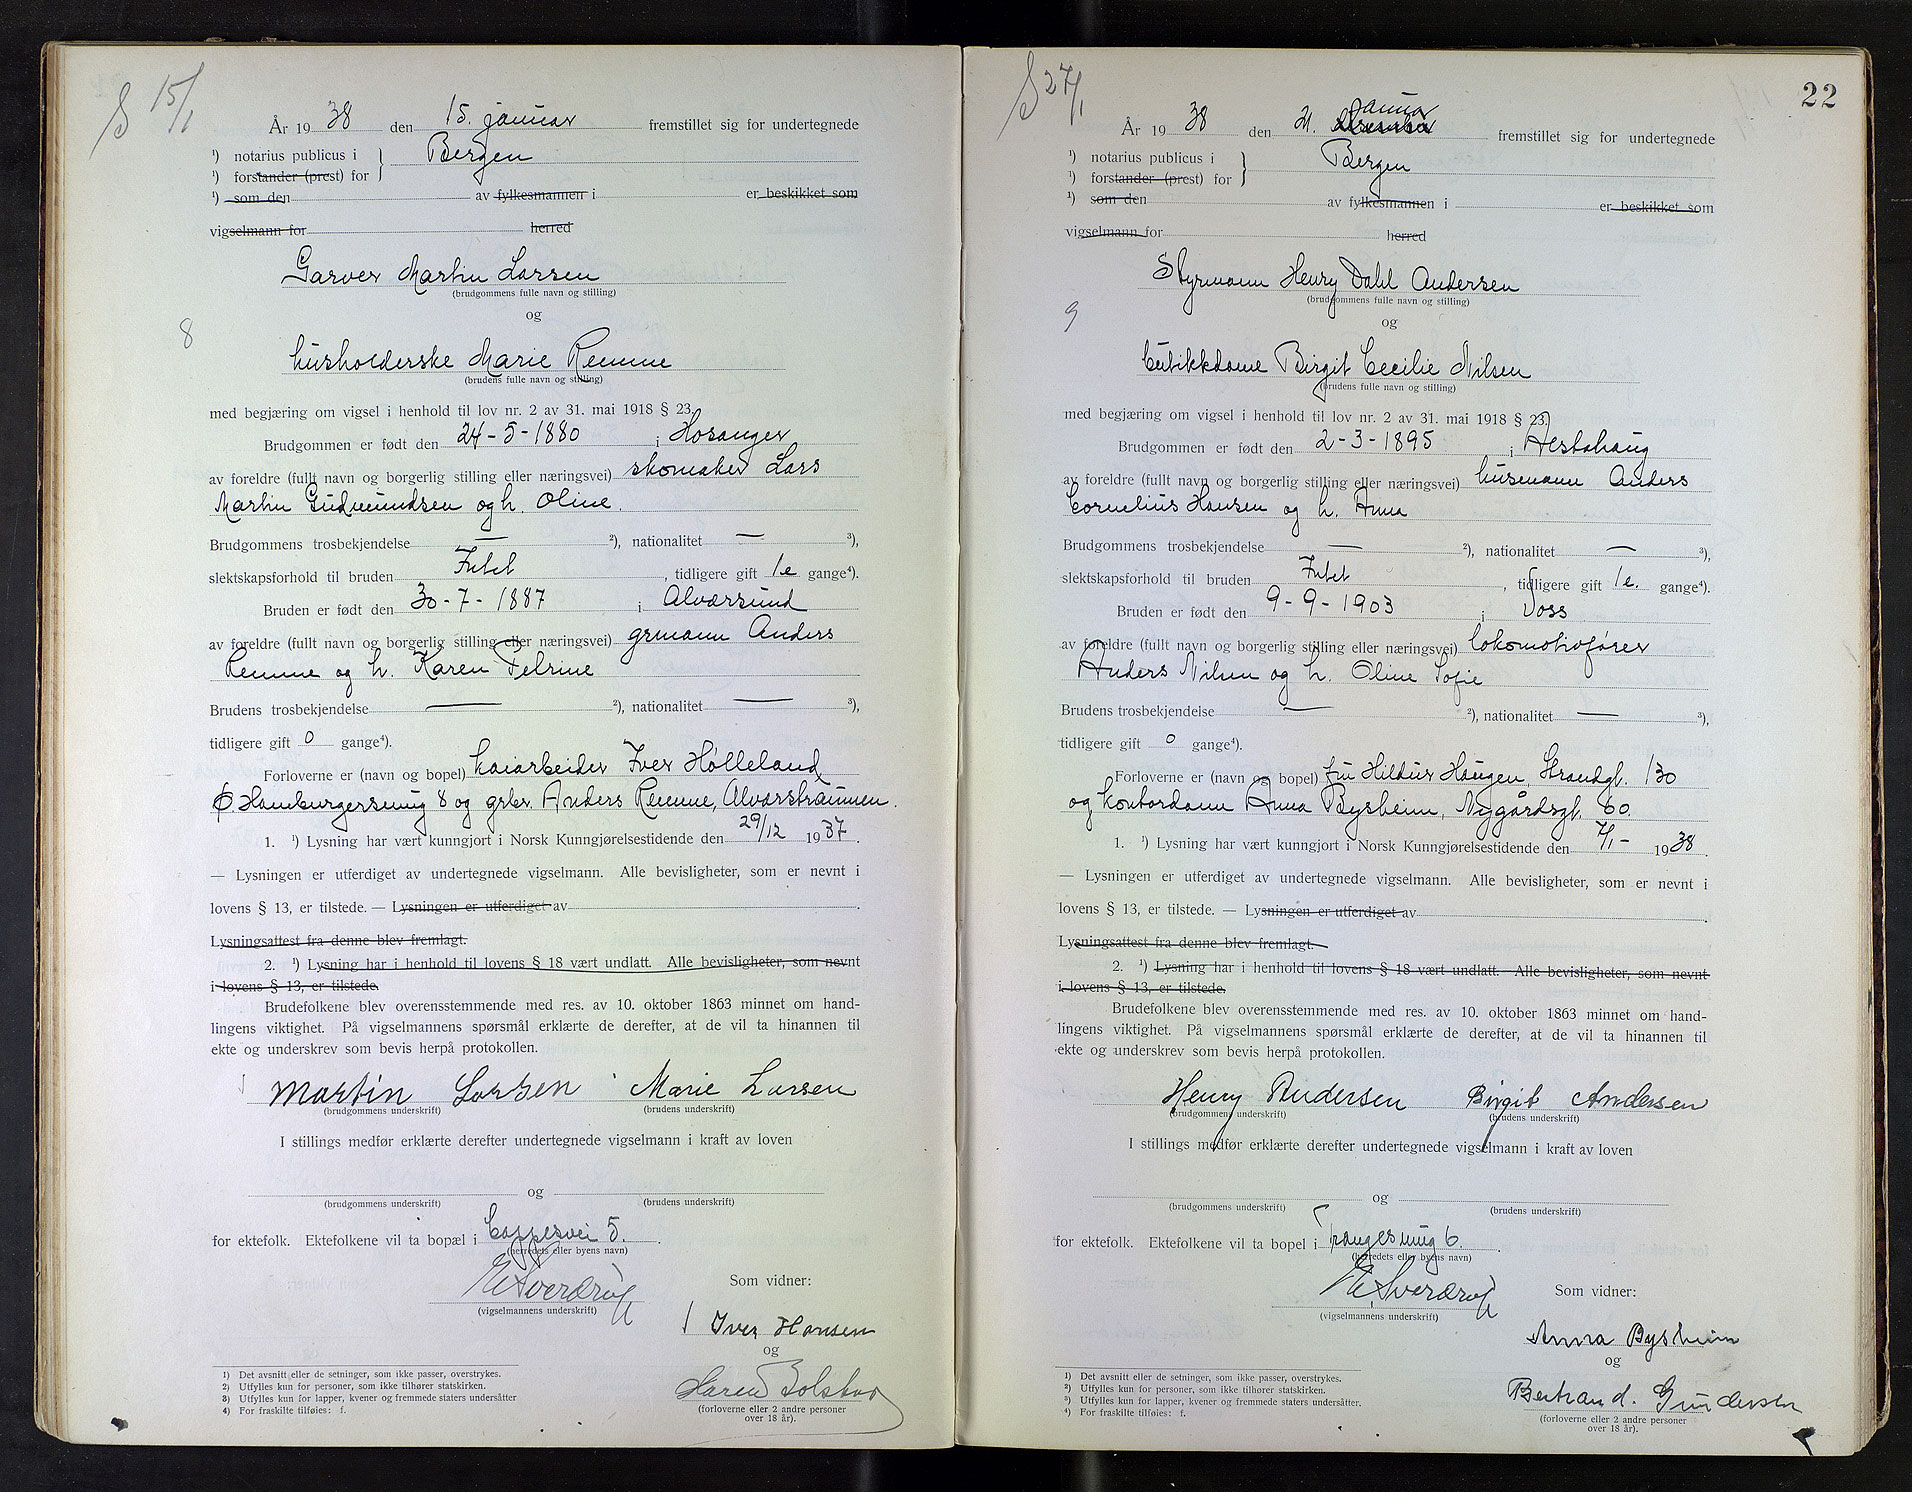 § 15/1
År 1938 den 15. januar fremstillet sig for undertegnede
¹) notarius publicus i } Bergen
¹) forstander (prest) for
¹) som den av fylkesmannen i er beskikket som
vigselmann for herred
Garver Martin Larsen
(brudgommens fulle navn og stilling)
og
8
husholderske Marie Remme
(brudens fulle navn og stilling)
med begjæring om vigsel i henhold til lov nr. 2 av 31. mai 1918 § 23.
Brudgommen er født den 24-5-1880 i Hosanger
av foreldre (fullt navn og borgerlig stilling eller næringsvei) skomaker Lars
Martin Gudmundsen og h. Oline.
Brudgommens trosbekjendelse — ²), nationalitet — ³),
slektskapsforhold til bruden Intet, tidligere gift 1 e gange⁴).
Bruden er født den 30-7-1887 i Alversund
av foreldre (fullt navn og borgerlig stilling eller næringsvei) grmann Anders
Remme og h. Karen Petrine
Brudens trosbekjendelse — ²), nationalitet — ³),
tidligere gift 0 gange⁴).
Forloverne er (navn og bopel) kaiarbeider Iver Hølleland
Ø. Hamburgersmug 8 og grbr. Anders Remme, Alverstraumen.
1. ¹) Lysning har vært kunngjort i Norsk Kunngjørelsestidende den 29/12 1937.
— Lysningen er utferdiget av undertegnede vigselmann. Alle bevisligheter, som er nevnt i
lovens § 13, er tilstede. — Lysningen er utferdiget av .
Lysningsattest fra denne blev fremlagt.
2. ¹) Lysning har i henhold til lovens § 18 vært undlatt. Alle bevisligheter, som nevnt
i lovens § 13, er tilstede.
Brudefolkene blev overensstemmende med res. av 10. oktober 1863 minnet om hand-
lingens viktighet. På vigselmannens spørsmål erklærte de derefter, at de vil ta hinannen til
ekte og underskrev som bevis herpå protokollen.
Martin Larsen Marie Larsen
(brudgommens underskrift) (brudens underskrift)
I stillings medfør erklærte derefter undertegnede vigselmann i kraft av loven
og
(brudgommens underskrift) (brudens underskrift)
for ektefolk. Ektefolkene vil ta bopæl i Cappesvei 5.
(herredets eller byens navn)
E Sverdrup
(vigselmannens underskrift)
Som vidner:
Iver Hansen
og
Bolstad
(forloverne eller 2 andre personer
over 18 år).
1) Det avsnitt eller de setninger, som ikke passer, overstrykes.
2) Utfylles kun for personer, som ikke tilhører statskirken.
3) Utfylles kun for lapper, kvener og fremmede staters undersåtter
4) For fraskilte tilføies: f.
22
§ 27/1
År 1938 den 21. januar fremstillet sig for undertegnede
¹) notarius publicus i } Bergen
¹) forstander (prest) for
¹) som den av fylkesmannen i er beskikket som
vigselmann for herred
Styrmann Henry Dahl Andersen
(brudgommens fulle navn og stilling)
9
og
butikkdame Birgit Cecilie Nilsen
(brudens fulle navn og stilling)
med begjæring om vigsel i henhold til lov nr. 2 av 31. mai 1918 § 23.
Brudgommen er født den 2-3-1895 i Alstahaug
av foreldre (fullt navn og borgerlig stilling eller næringsvei) husmann Anders
Cornelius Hansen og h. Anna
Brudgommens trosbekjendelse — ²), nationalitet — ³),
slektskapsforhold til bruden Intet, tidligere gift 1 e. gange⁴).
Bruden er født den 9-9-1903 i Voss
av foreldre (fullt navn og borgerlig stilling eller næringsvei) lokomotivfører
Anders Nilsen og h. Oline Sofie
Brudens trosbekjendelse — ²), nationalitet — ³),
tidligere gift 0 gange⁴).
Forloverne er (navn og bopel) fru Hildur Haugen, Strandgt. 130
og kontordame Anna Bysheim, Nygårdsgt. 60.
1. ¹) Lysning har vært kunngjort i Norsk Kunngjørelsestidende den 7/1- 1938.
— Lysningen er utferdiget av undertegnede vigselmann. Alle bevisligheter, som er nevnt i
lovens § 13, er tilstede. — Lysningen er utferdiget av .
Lysningsattest fra denne blev fremlagt.
2. ¹) Lysning har i henhold til lovens § 18 vært undlatt. Alle bevisligheter, som nevnt
i lovens § 13, er tilstede.
Brudefolkene blev overensstemmende med res. av 10. oktober 1863 minnet om hand-
lingens viktighet. På vigselmannens spørsmål erklærte de derefter, at de vil ta hinannen til
ekte og underskrev som bevis herpå protokollen.
Henry Andersen Birgit Andersen
(brudgommens underskrift) (brudens underskrift)
I stillings medfør erklærte derefter undertegnede vigselmann i kraft av loven
og
(brudgommens underskrift) (brudens underskrift)
for ektefolk. Ektefolkene vil ta bopel i Trangesmug 6.
(herredets eller byens navn)
E. Sverdrup
(vigselmannens underskrift)
Som vidner:
Anna Bysheim
og
Bertrand. Gundersen
(forloverne eller 2 andre personer
over 18 år).
1) Det avsnitt eller de setninger, som ikke passer, overstrykes.
2) Utfylles kun for personer, som ikke tilhører statskirken.
3) Utfylles kun for lapper, kvener og fremmede staters undersåtter.
4) For fraskilte tilføies: f.